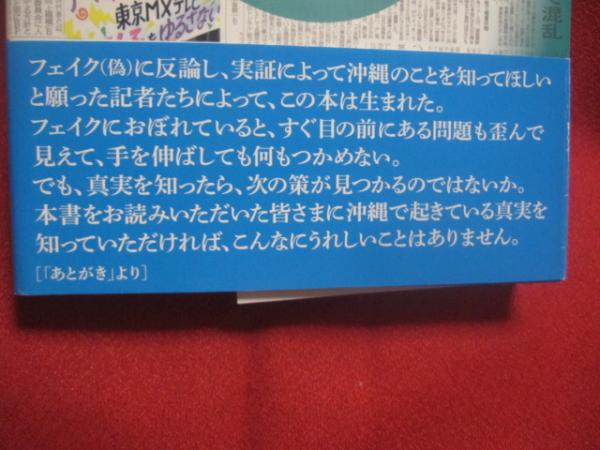 東京MXテレビ
をゆるさない
混乱
フェイク(偽)に反論し、実証によって沖縄のことを知ってほしい
と願った記者たちによって、この本は生まれた。
フェイクにおぼれていると、すぐ目の前にある問題も歪んで
見えて、手を伸ばしても何もつかめない。
でも、真実を知ったら、次の策が見つかるのではないか。
本書をお読みいただいた皆さまに沖縄で起きている真実を
知っていただければ、こんなにうれしいことはありません。
[「あとがき」より]